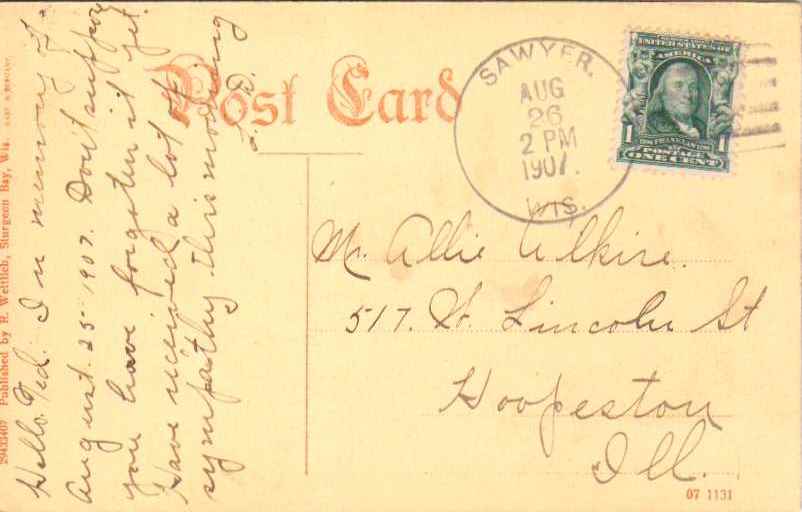 Post Card
SAWYER.
AUG
26
2 PM
1907.
WIS.
UNITED STATES OF
AMERICA
1
FRANKLIN
1
POSTAGE
ONE CENT
Mr. Allie Wilkire.
517. W. Lincoln St
Hoopeston
Ill.
07 1131
Hello. Ted. In memory of-
August. 25- 1907. Don't suppose
you have forgoten it yet.
Have received a lot of
sympathy this morning
Published by R. Wettlieb, Sturgeon Bay, Wis.